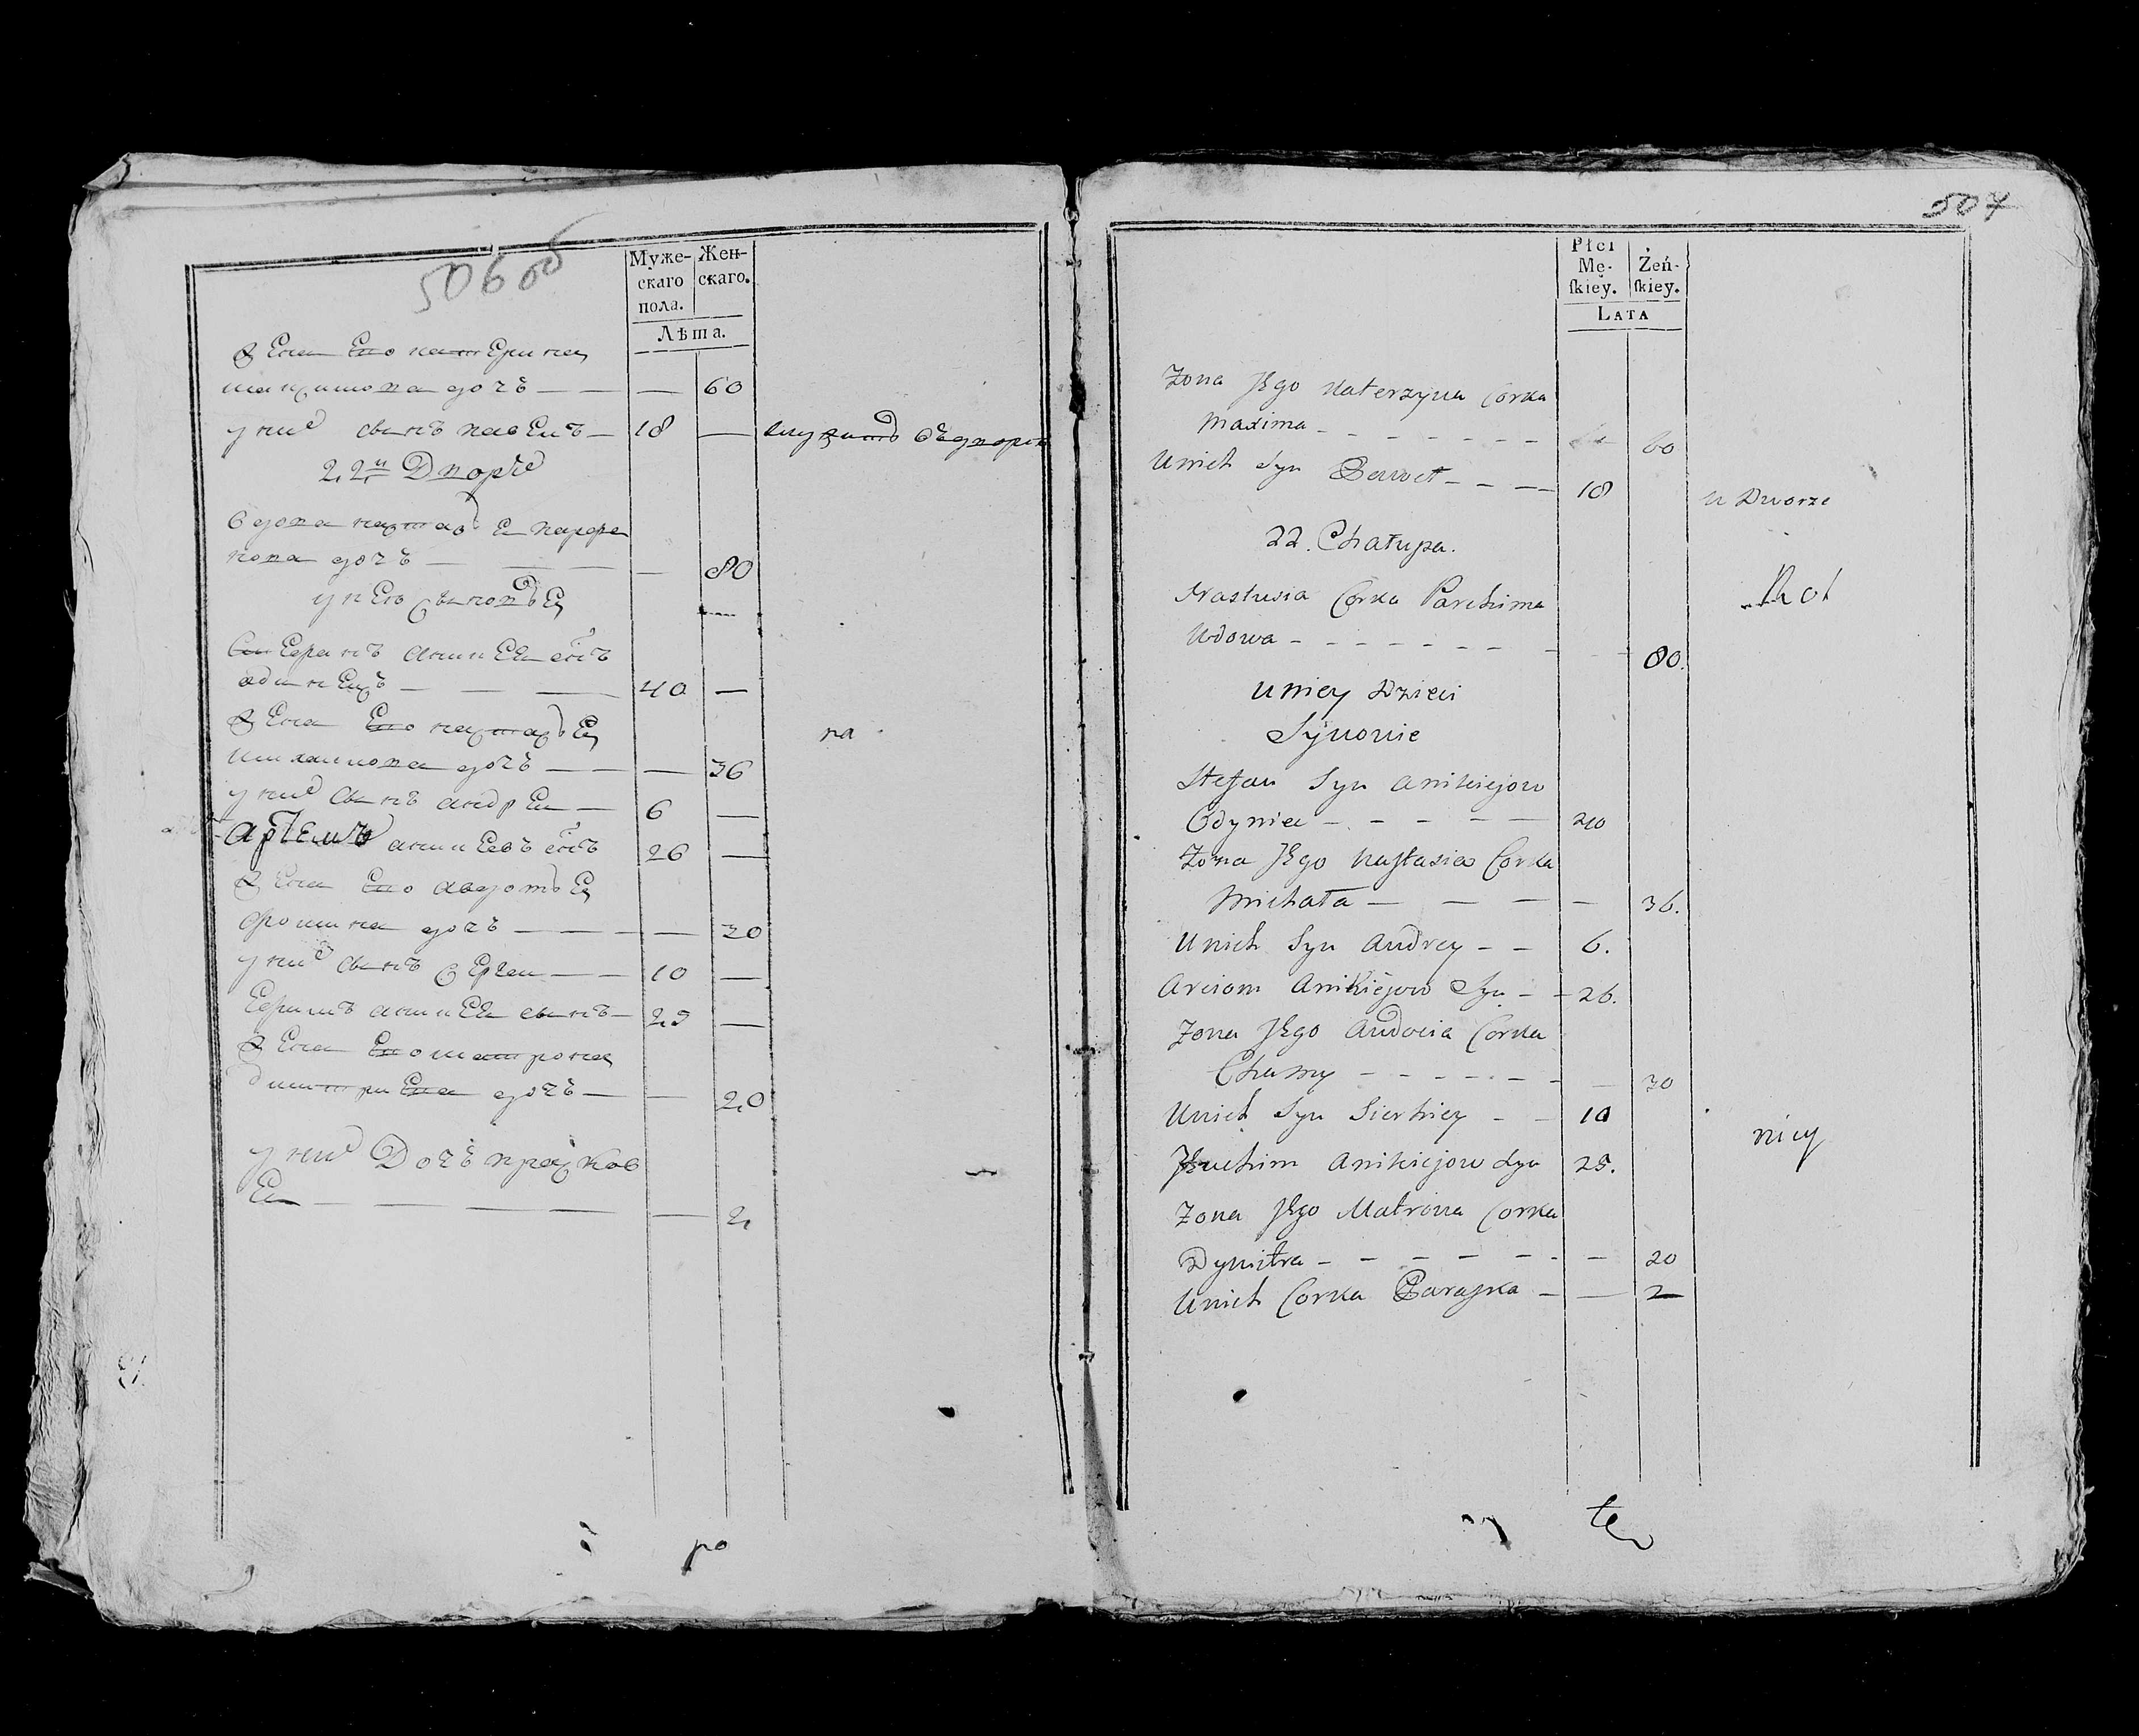 506 об
Муже-
скаго
пола.
Жен-
скаго.
Лѣта.
Жена Его катЕрина
максимова дочь — — — 60
у них сынъ павЕлъ — 18 — служитъ въ дворе
22й Дворъ
вдова настасЕя парфе
нова дочь — — — — 80
у нЕю сыновЕя
СтЕфанъ аникЕЕв сынъ
адинЕцъ — — — 40 —
жЕна Его настасЕя
михаилова дочь — — — 36
у них сынъ андрЕи — 6 —
Артемъ аникЕевъ сынъ 26 —
жЕна Его авдотЕя
фомина дочь — — — — 30
у них сынъ сЕргеи — — 10 —
Ефимъ аникЕЕв сынъ — 25 —
жЕна Его матрона
дмитриЕва дочь — — 20
у них Дочь прасков
Ея — — — — — 2
на
ро
507
Płci
Mę-
ſkiey.
Żeń-
ſkiey.
LATA
Zona Jego Katerzyna Corka
Maxima - - - - - - - 60
Unich Syn Pawel - - - — 18 u Dworze
22. Chałupa.
Nastusia Corka Parchima
Wdowa - - - - - - - - 80.
Uniey Dzieci
Synowie
Stefan Syn Anikiejow
Odyniec - - - - — 40
Zona Jego Nastasia Corka
Michała — — — — 36.
Unich Syn Andrey - - 6.
Arciom Anikiejow Syn - - 26.
Zona Jego Audocia Corka
Chamy - - - - - - - — 30
Unich Syn Sierhiey - - 10
Juchim Anikiejow Syn 25.
Zona Jego Matrona Corka
Dymitra - - - - - - — 20
Unich Corka Paraska - — 2
niey